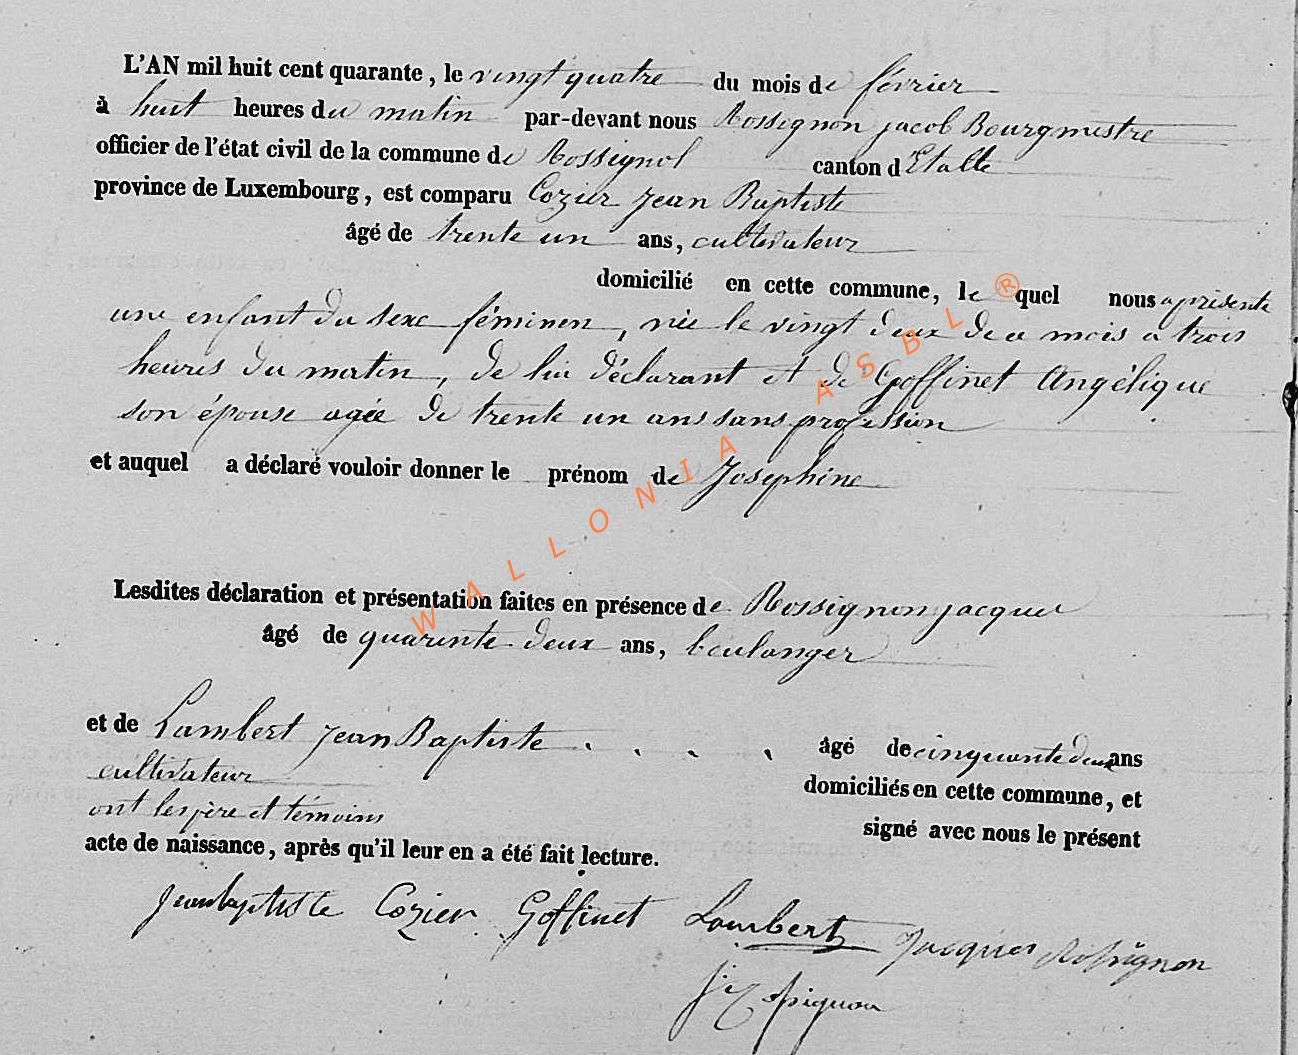 L'AN mil huit cent quarante, le vingt quatre du mois de février
à huit heures du matin par-devant nous Rossignon jacob Bourgmestre
officier de l'état civil de la commune de Rossignol canton d'Etalle
province de Luxembourg, est comparu Cozier Jean Baptiste
âgé de trente un ans, cultivateur
domicilié en cette commune, le quel nous a présenté
une enfant du sexe féminen, née le vingt deux de ce mois a trois
heures du matin, de lui déclarant et de Goffinet Angélique
son épouse agée de trente un ans sans profession
et auquel a déclaré vouloir donner le prénom de Josephine
Lesdites déclaration et présentation faites en présence de Rossignon jacques
âgé de quarente deux ans, boulanger
et de Lambert Jean Baptiste âgé de cinquante deux ans
cultivateur domiciliés en cette commune, et
ont les père et témoins signé avec nous le présent
acte de naissance, après qu'il leur en a été fait lecture.
Jeanbaptiste Cozier Goffinet Lambert Jacques Rossignon
WALLONIA ASBL ®